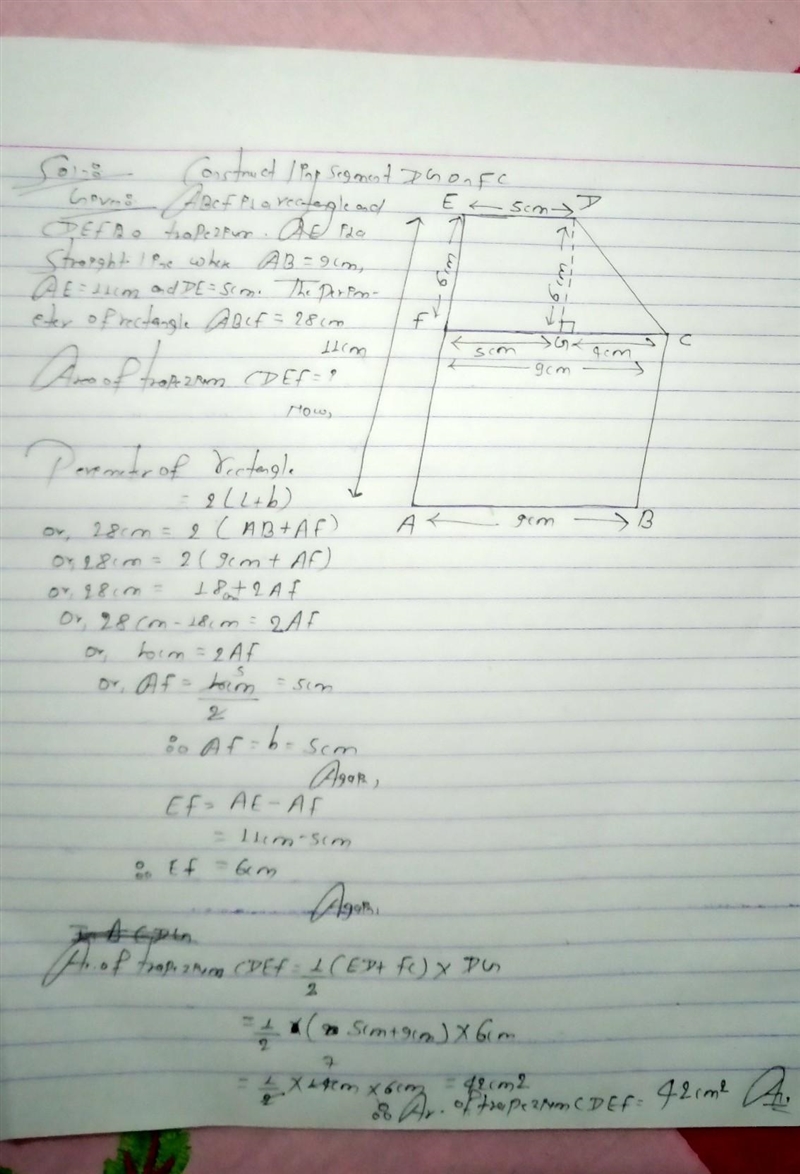 Solⁿ:- Construct line segment DG on FC
Given:- ABCF is a rectangle and
CDEF is a trapezium. AE is a
straight line when AB = 9cm,
AE = 11cm and DE = 5cm. The perim-
eter of rectangle ABCF = 28cm
Area of trapezium CDEF = ?
Now,
E
5cm
D
6cm
6cm
F
G
C
5cm
4cm
9cm
11cm
A
9cm
B
Perimeter of rectangle
= 2(l+b)
or, 28cm = 2 (AB+AF)
or, 28cm = 2(9cm + AF)
or, 28cm = 18cm + 2AF
or, 28cm - 18cm = 2AF
or, 10cm = 2AF
or, AF = 10cm/2 5 = 5cm
∴ AF = b = 5cm
Again,
EF = AE - AF
= 11cm - 5cm
∴ EF = 6cm
Again,
Ar. of trapezium CDEF = 1/2 (ED + FC) × DG
= 1/2 × (5cm+9cm) × 6cm
7
= 1/2 × 14cm × 6cm = 42cm2
∴ Ar. of trapezium CDEF = 42cm² A.